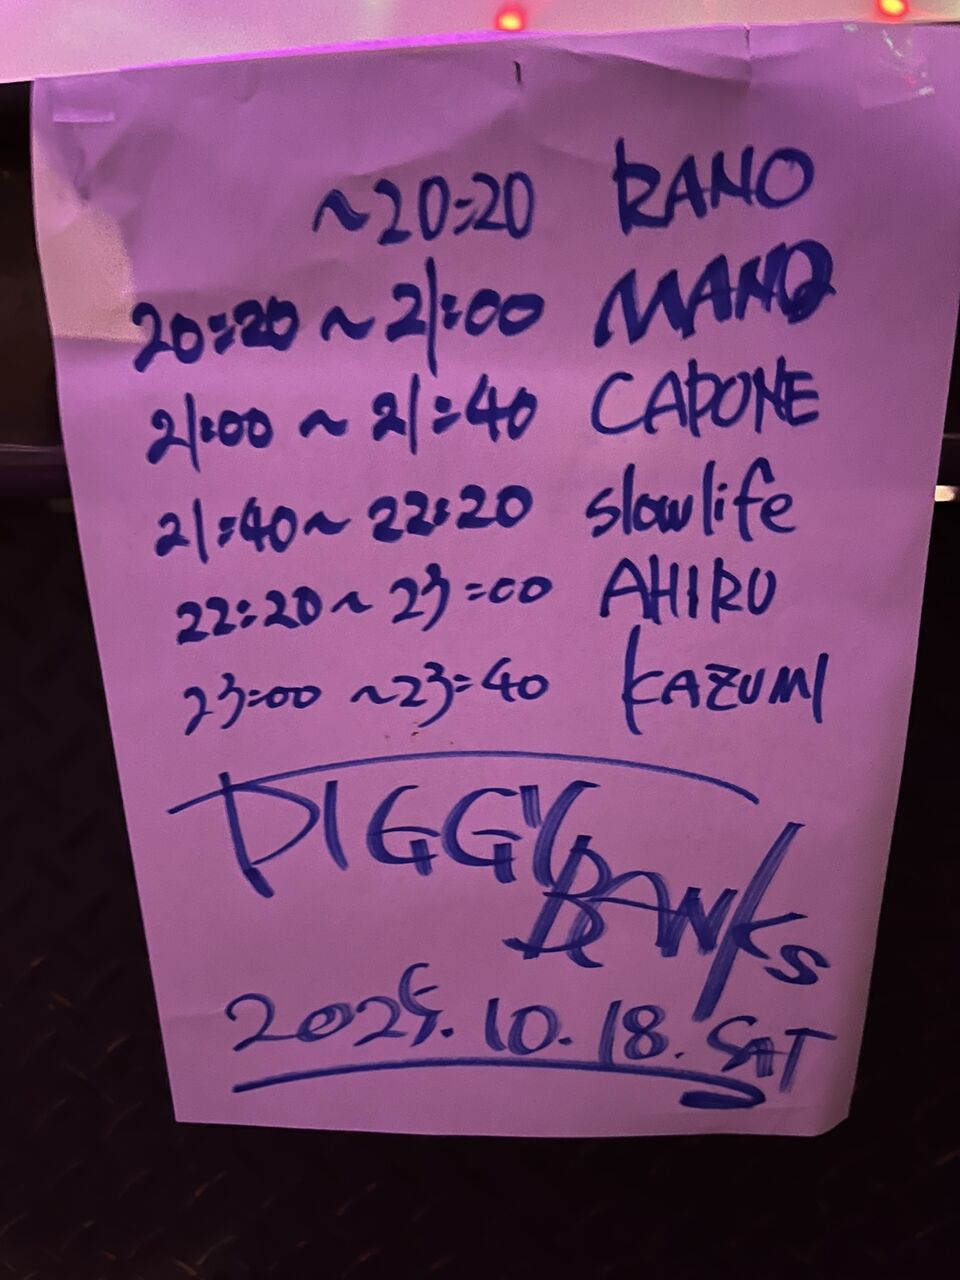 ~20:20 RANO
20:20 ~ 21:00 MANO
21:00 ~ 21:40 CAPONE
21:40 ~ 22:20 slowlife
22:20 ~ 23:00 AHIRU
23:00 ~ 23:40 KAZUMI
PIGGY
BANKS
2025. 10. 18. SAT